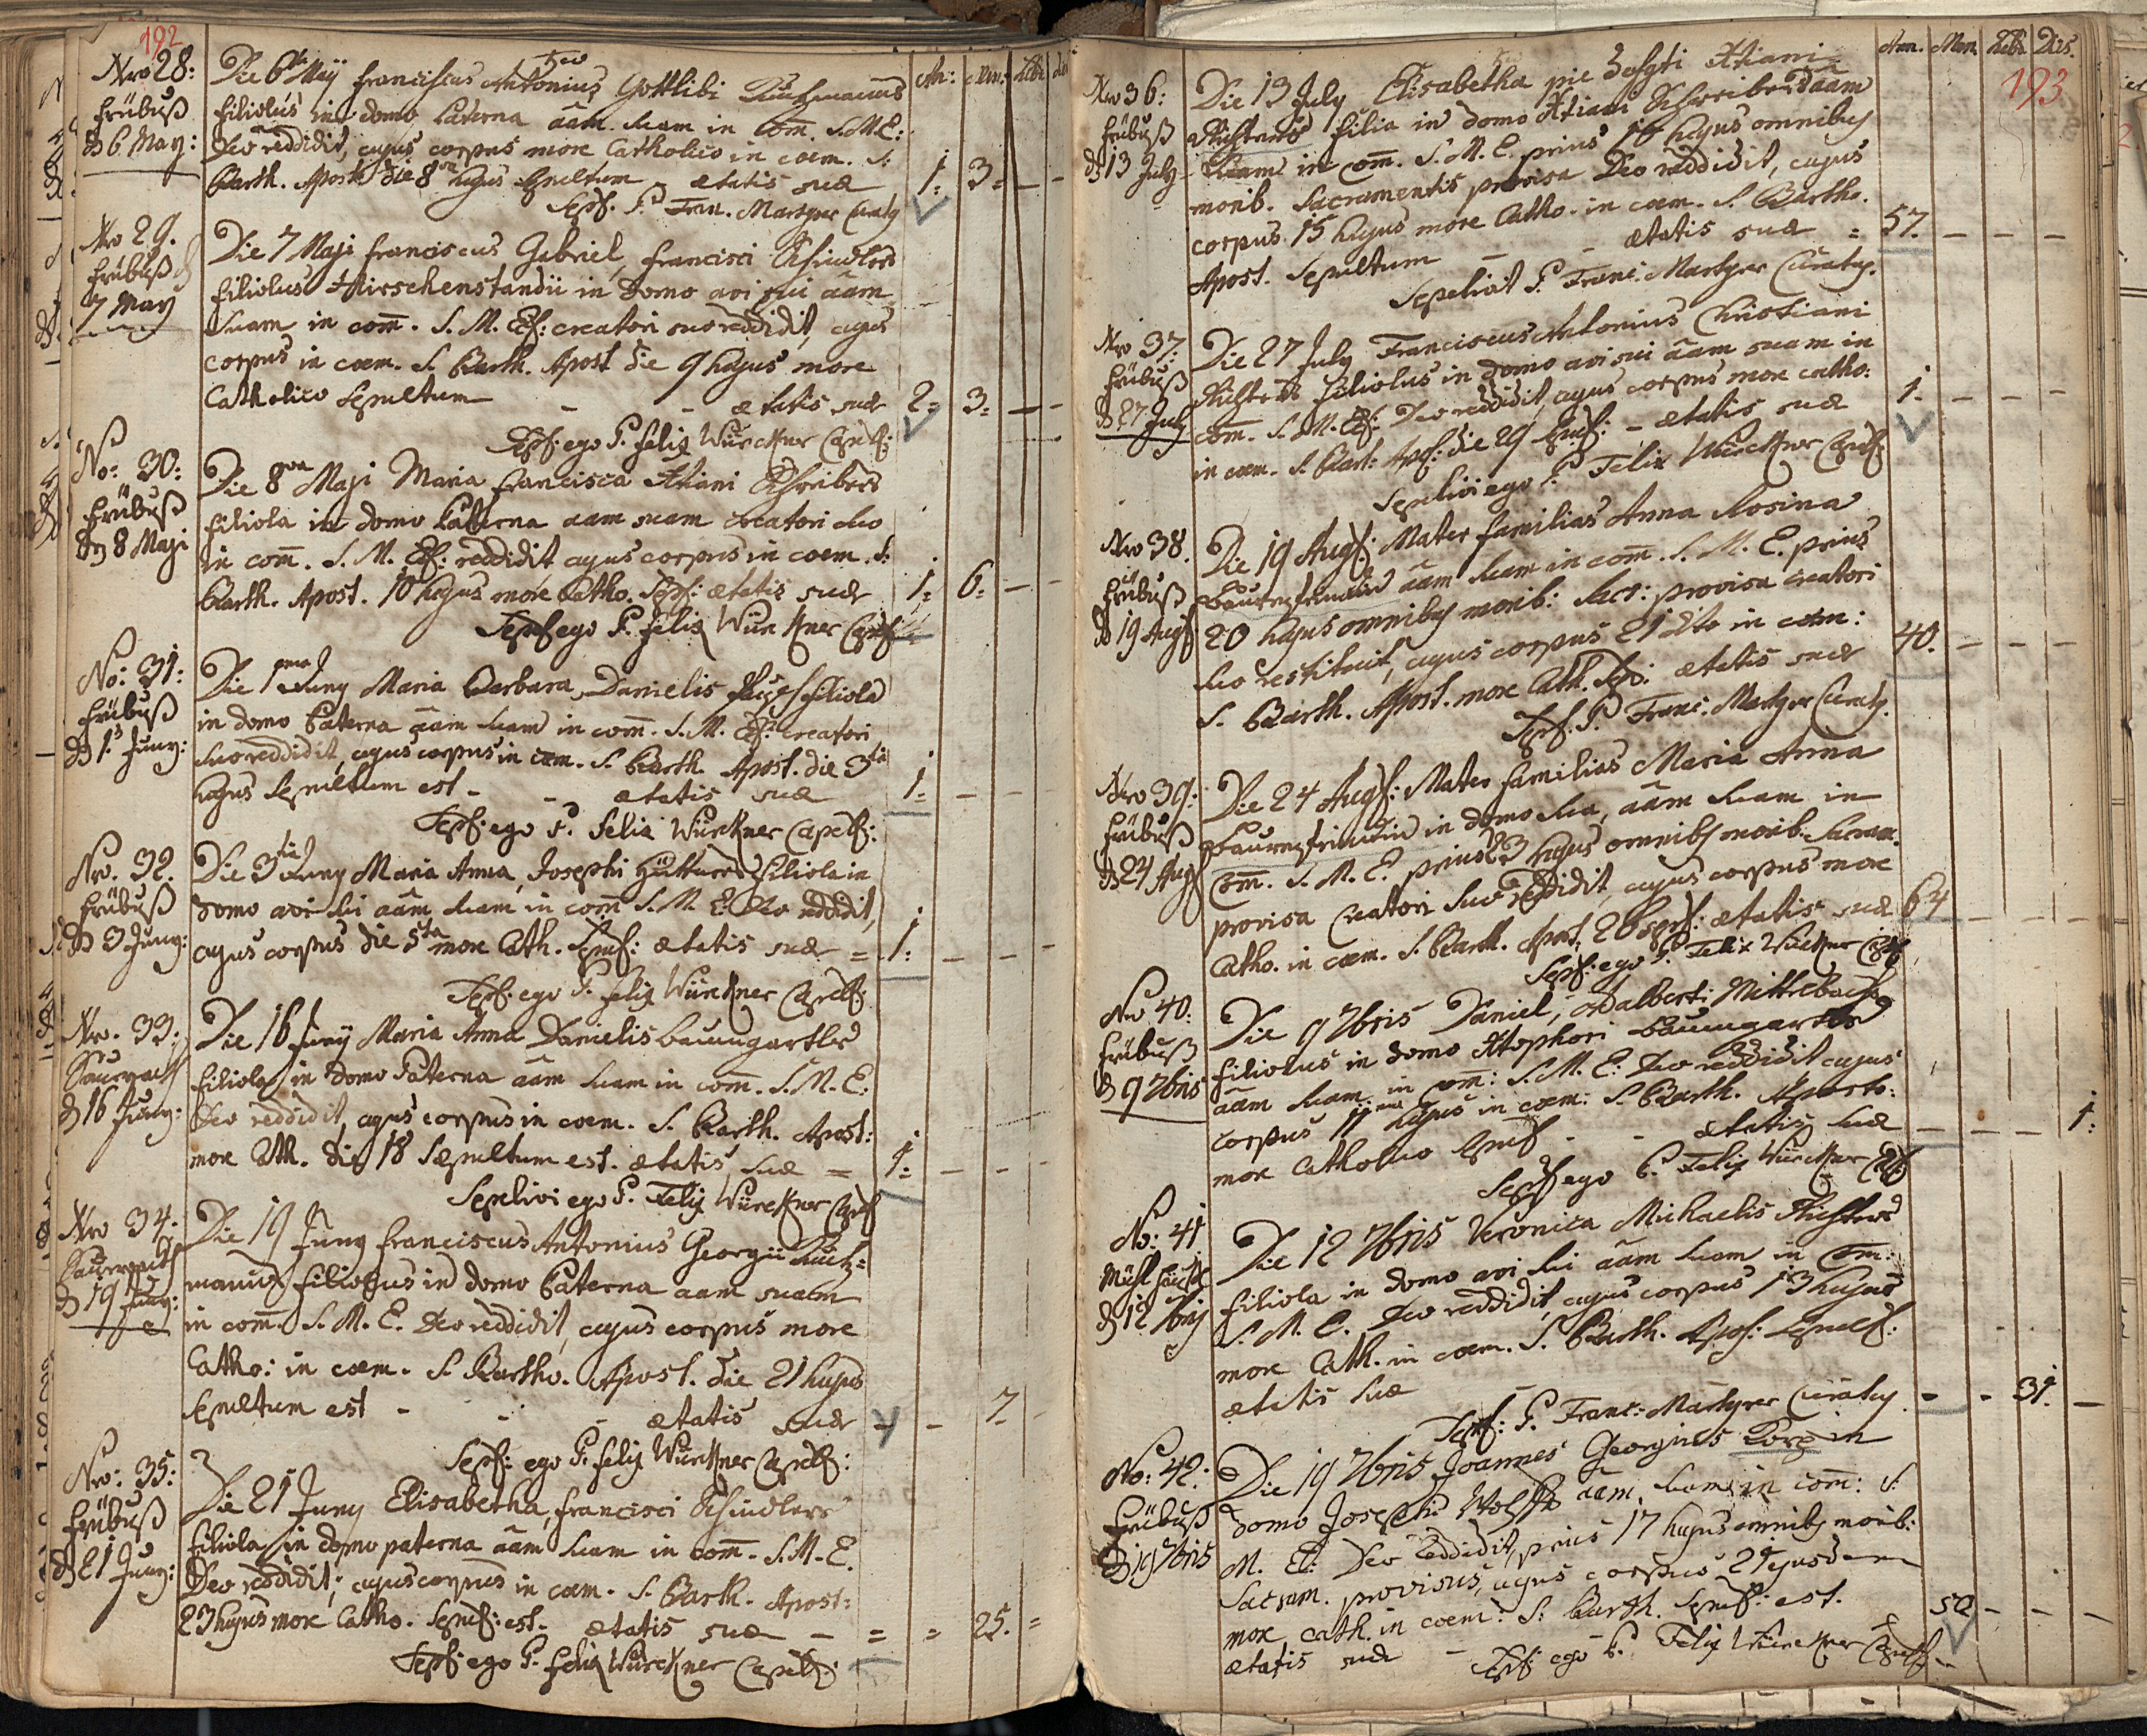 192
An: Men: Heb: Di
Nro 28:
Frübuß
d 6 May:
Die 6ta Maÿ Franciscus Antonius Gottlibi
filiolus in domo Paterna aam. suam in Com. S.M.E:
Deo reddidit, cujus corpus more Catholico in coem. S:
Barth. Apost: die 8va hujus Sepultum - ætatis suæ 1: 3: - -
Sep. P. Fran. Martyrer Curatq
Nro 29.
Frübuß
7 May
Die 7 Maji Franciscus Gabriel, Francisci Schindlers
filiolus Hirschenstandii in domo avi sui aam
suam in com. S. M. Ef: creatori suo reddidit, cujus
corpus in coem. S. Barth. Apost die 9 hujus more
Catholico Sepultum - - ætatis suæ 2: 3: - -
Sepf: ego P. Felix Würckner Capell:
No: 30:
Frübuß
d 8 Maji
Die 8va Maji Maria Francisca Xtiani Schreibers
filiola in domo Paterna aam suam Creatori suo
in com. S. M. Ef: reddidit cujus corpus in coem. S:
Barth. Apost. 10 hujus more Catho. Sepf: ætatis suæ 1: 6: - -
Sepf ego P. Felix Würckner Capell
No: 31:
Frübuß
d 1. Juny:
Die 1ma Juny Maria Barbara, Danielis filiola
in domo Paterna aam suam in com. S. M. Ef: Creatori
suo reddidit, cujus corpus in coem. S. Barth. Apost. die 3tia
hujus Sepultum est - - ætatis suæ 1: - - -
Sepf: ego P. Felix Würckner Capell:
Nr. 32.
Frübuß
d 3 Juny:
Die 3tia Juny Maria Anna, Josephi Hüttners filiola in
domo avi sui aam suam in com S. M. E: Deo reddidit,
cujus corpus die 5ta more Cath. Sepulf: ætatis suæ = 1: - - -
Sepf: ego P. Felix Würckner Capell:
Nr. 33:
Saursack
d 16 Juny:
Die 16 Junÿ Maria Anna Danielis Baumgartler
filiola in domo Paterna aam suam in com. S. M. E:
Deo reddidit, cujus corpus in coem. S. Barth. Apost:
more Cath. die 18 Sepultum est. ætatis suæ = 1: - - -
Sepelivi ego P. Felix Würckner Capell
Nro 34.
Saursack
d 19 Juny:
Die 19 Juny Franciscus Antonius Georgii
filiolus in domo Paterna aam suam
in com. S. M. E. Deo reddidit, cujus corpus more
Catho: in coem. S. Bartho. Apost. die 21 hujus
Sepultum est - - ætatis suæ - - 7. -
Sepf: ego P. Felix Würckner Capell:
Nro: 35:
Frübuß
d 21 Juny:
Die 21 Juny Elisabetha, Francisci Schindlers
filiola in domo paterna aam suam in com. S. M. E.
Deo reddidit; cujus corpus in coem. S. Barth. Apost:
23 hujus more Catho. Sepulf: est. ætatis suæ - = = 25. =
Sepf: ego P. Felix Würckner Capell:
Ann. Men. Hebd. Dies.
193
Nro 36:
Frübuß
d 13 July
Die 13 July Elisabetha pie defyti Xtiani
Richters filia in domo Xtiani Schreibers aam
suam in com. S. M. E. prius 10 hujus omnibus
morib. Sacramentis provisa Deo reddidit, cujus
corpus 15 hujus more Catho. in coem. S. Bartho.
Apost. Sepultum - - ætatis suæ = 57. - - -
Sepelivit P. Franc: Martyrer Curatq.
Nr 37.
Frübuß
d 27 July
Die 27 July Franciscus Antonius Christiani
Richters filiolus in domo avi sui aam suam in
com. S. M. Ef: Deo reddidit, cujus corpus more catho:
in coem. S. Bart: Apf: die 29 Sepulf: - ætatis suæ 1. - - -
Sepelivi ego P. Felix Würckner Capell:
Nro 38.
Frübuß
d 19 Augf
Die 19 Augf: Mater familias Anna Rosina
aam suam in com. S. M. E. prius
20 hujus omnibus morib: Sacr: provisa creatori
suo restituit, cujus corpus 21 dito in coem:
S. Barth. Apost. more Cath. Sep: ætatis suæ 40. - - -
Sepf. P. Franc: Martyrer Curatq.
Nro 39:
Frübuß
d 24 Augf
Die 24 Augf: Mater familias Maria Anna
in domo sua, aam suam in
Com. S. M. E. prius 23 hujus omnibus morib. Sacram.
provisa Creatori suo reddidit, cujus corpus more
Catho. in coem. S. Barth. Apost: 26 Sepf: ætatis suæ 64 - - -
Sepf: ego P. Felix Würckner Capell
No 40:
Frübuß
d 9 7bris
Die 9 7bris Daniel, Adalberti Mittlebach
filiolus in domo Xtophori Baumgartler
aam suam in com: S. M. E: Deo reddidit cujus
corpus 11ma hujus in coem: S. Barth. Aposto:
more Catholico Sepulf - - ætatis suæ - - - 1:
Sepf ego P. Felix Würckner Capell
No: 41
d 12 7bris
Die 12 7bris Veronica Michaelis Richters
filiola in domo avi sui aam suam in Com:
S. M. E. Deo reddidit, cujus corpus 13 hujus
more Cath. in coem. S. Barth. Apos: Sepulf:
ætatis suæ - - - 31. -
Sepf: P. Franc: Martyrer Curatq
No: 42:
Frübuß
d 19 7bris
Die 19 7bris Joannes Georgius in
domo Josephi Wolffs aam. suam in com: S.
M. E: Deo reddidit, prius 17 hujus omnibus morib:
Sacram. provisus, cujus corpus 21 ejusdem
more Cath. in coem: S: Barth. Sepulf: est.
ætatis suæ - 52 - - -
Sepf: ego P. Felix Würckner Capell